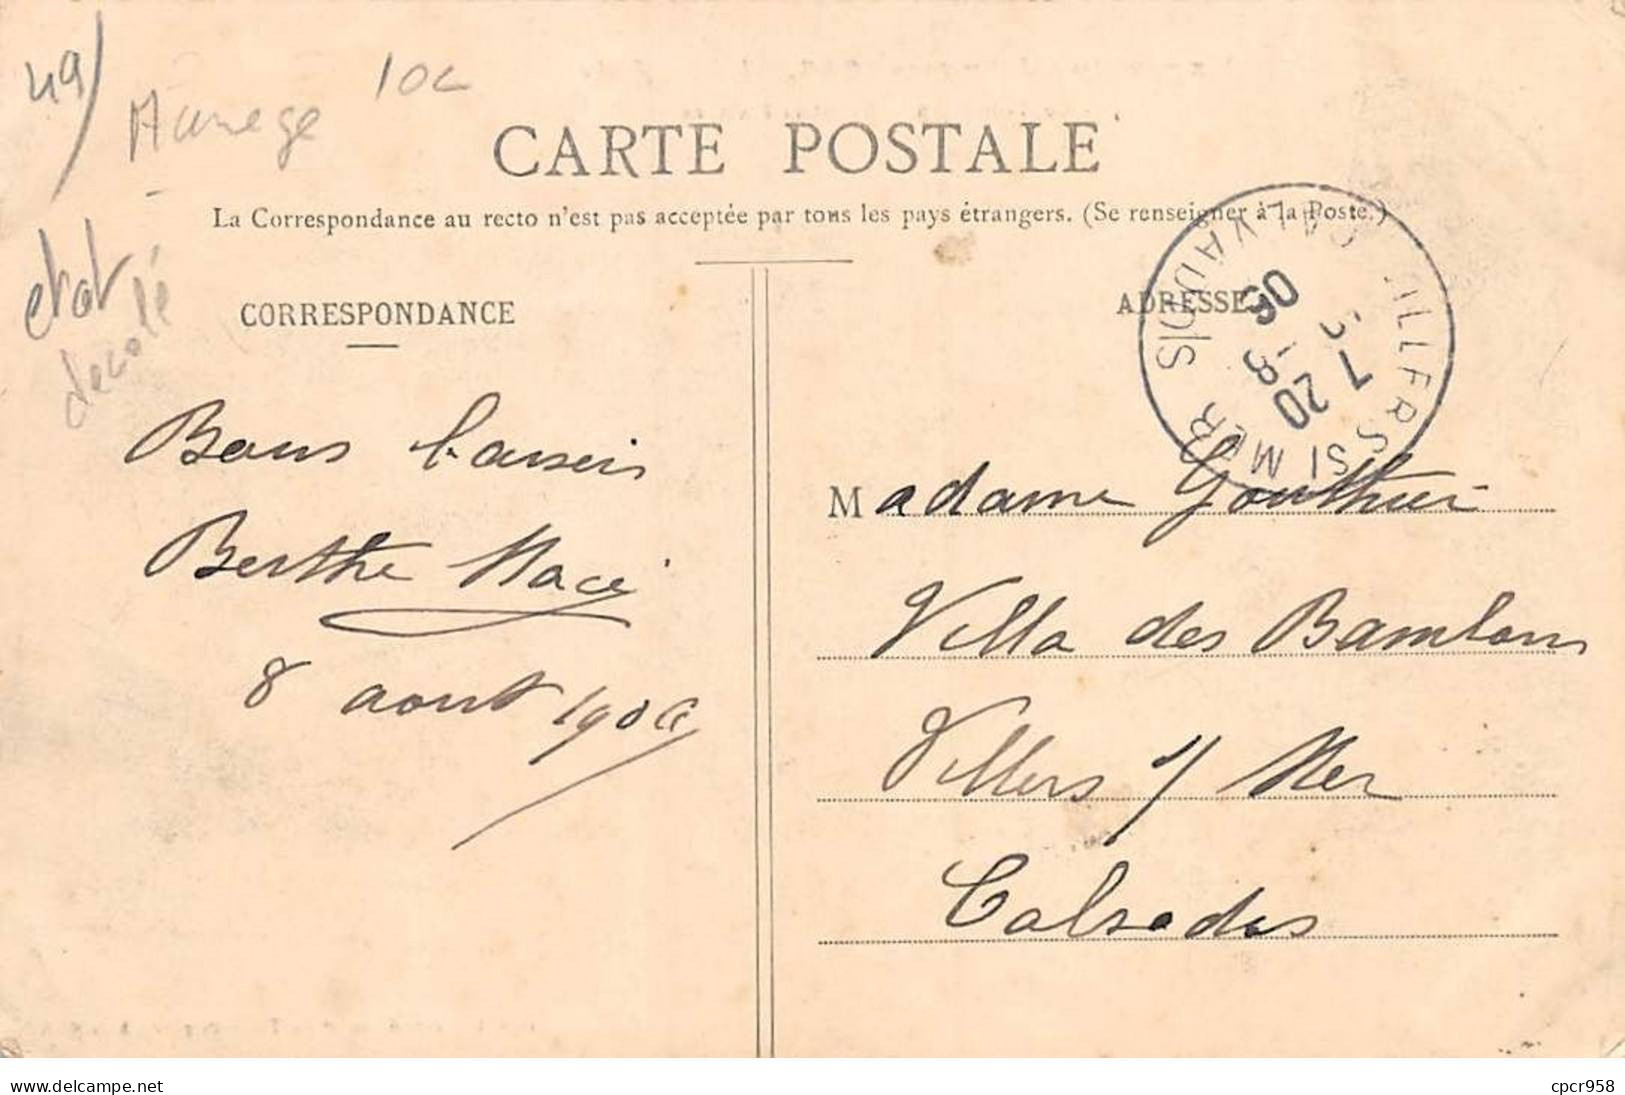 49/
Manege
10c
etat
decolé
CARTE POSTALE
La Correspondance au recto n'est pas acceptée par tous les pays étrangers. (Se renseigner à la Poste.)
CORRESPONDANCE
ADRESSE
VILLERS S MER CALVADOS
7 20
9 -8
06
Bons baisers
Berthe Macé
8 aout 1906
Madame Gouthier
Villa des Bambous
Villers s/ Mer
Calvados
www.delcampe.net
cpcr958